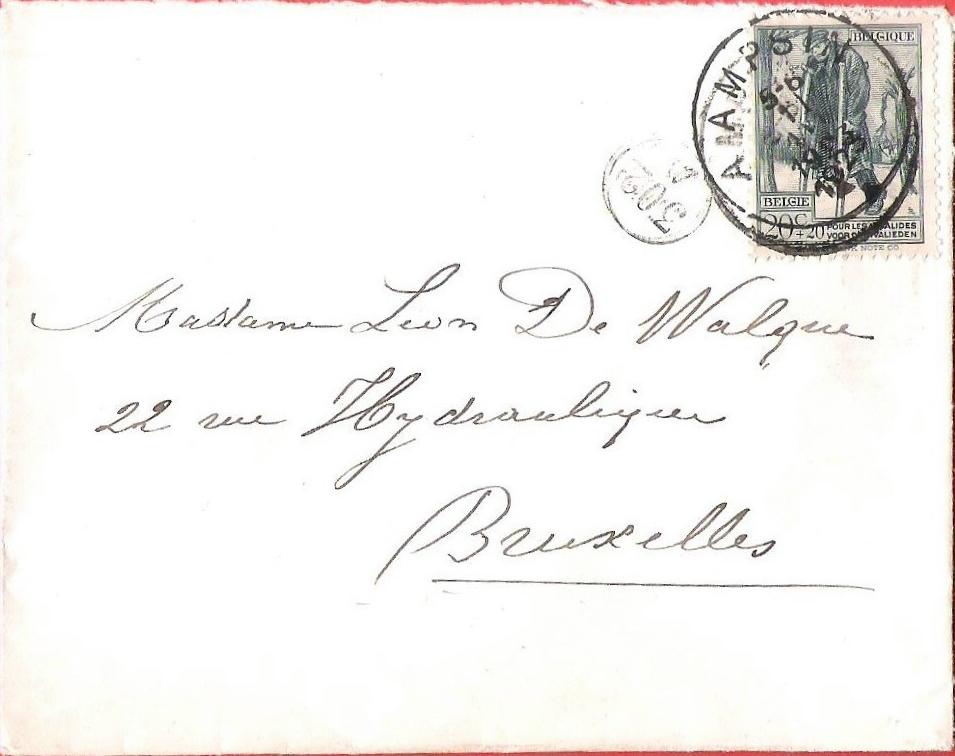 BELGIQUE
AMPSIN
5-6
1923
BELGIE
20c+20
POUR LES INVALIDES
VOOR DE INVALIEDEN
NOTE CO
Madame Leon De Walque
22 rue Hydraulique
Bruxelles